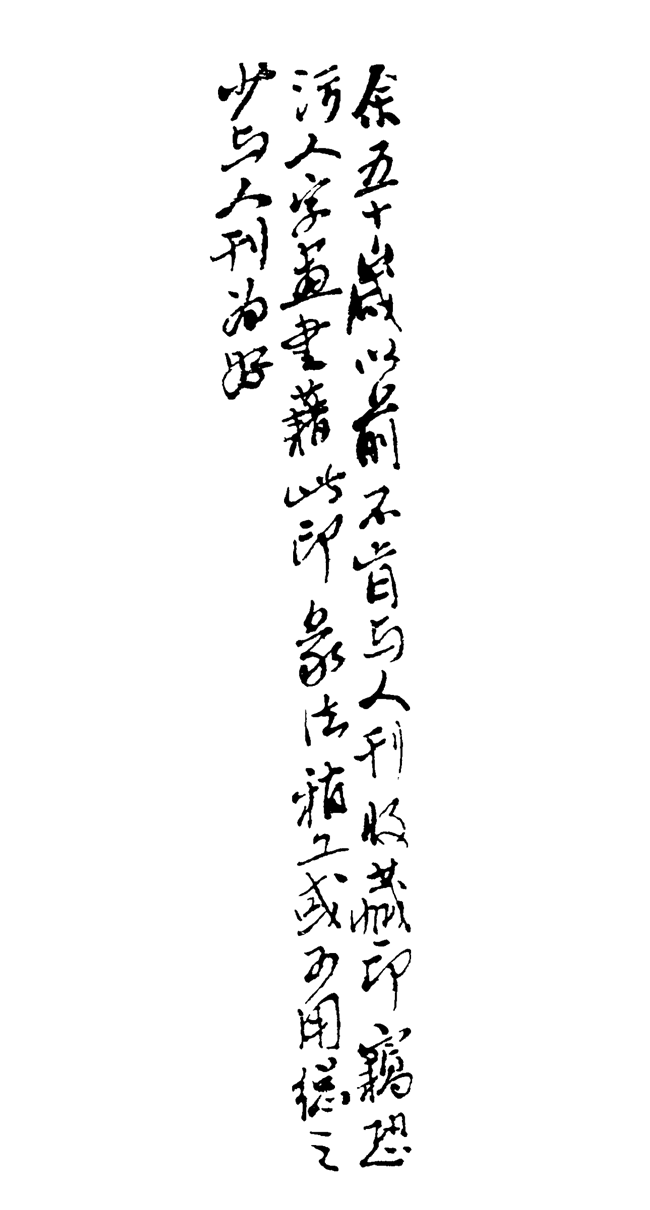 余五十歲以前不肯与人刊收藏印竊恐
污人字畫書籍此印篆法稍工或可用總之
少与人刊為好